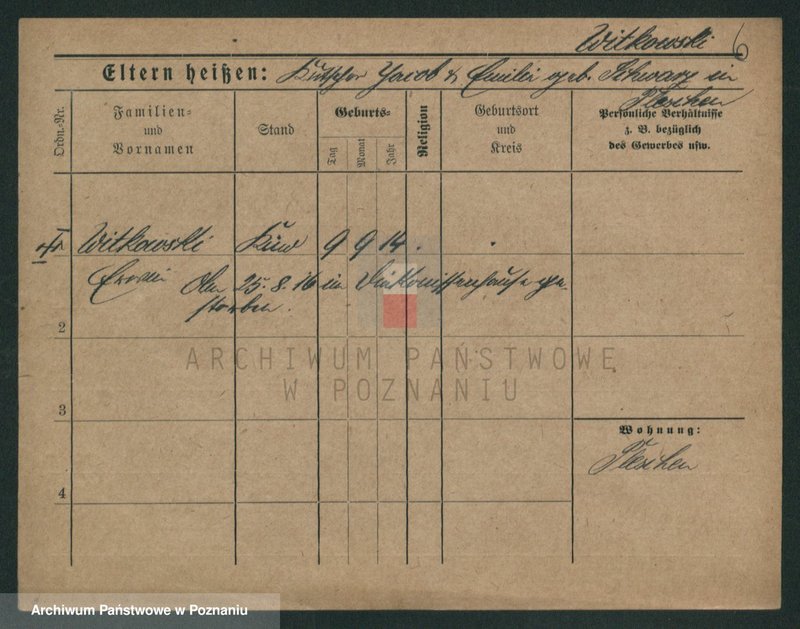 Witkowski 6
Eltern heißen: Kutscher Jacob & Emilie geb. Schwarz in
Pleschen
Ordn.-Nr.
Familien-
und
Vornamen
Stand
Geburts-
Tag
Monat
Jahr
Religion
Geburtsort
und
Kreis
Persönliche Verhältnisse
z. B. bezüglich
des Gewerbes usw.
Witkowski Kind 9 9 14
Erwin Am 25. 8. 16 im Diakonissenhause ge-
storben.
2
3
4
Wohnung:
Pleschen
ARCHIWUM PAŃSTWOWE
W POZNANIU
Archiwum Państwowe w Poznaniu